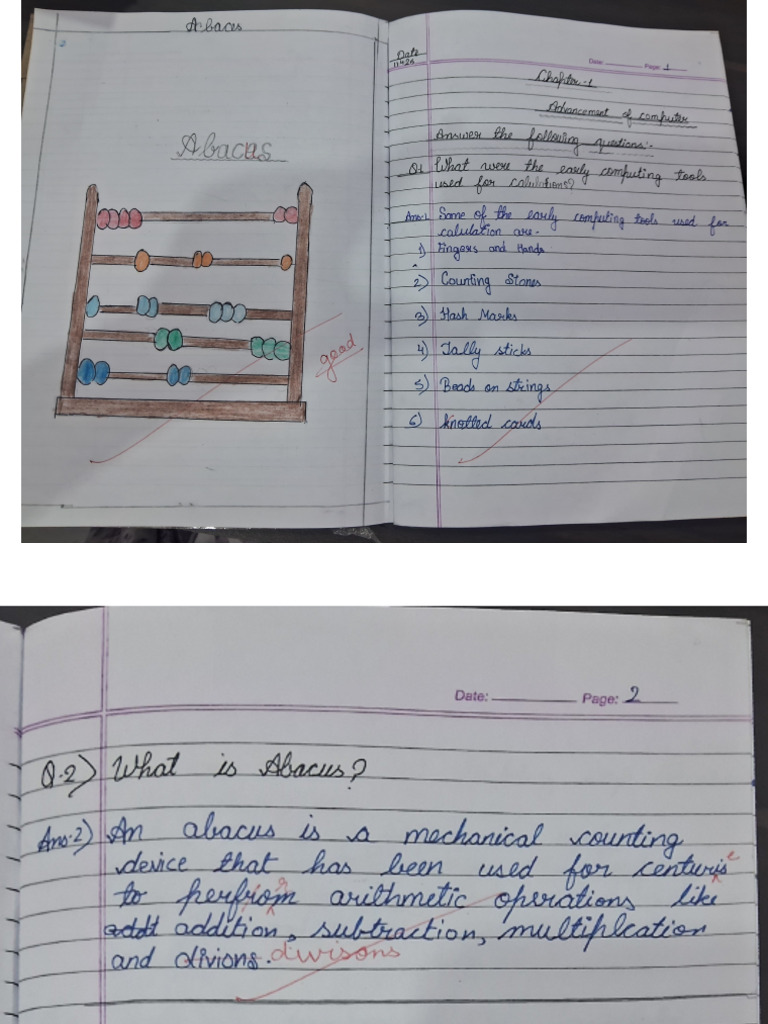 Abacus
Abacus
good
Date
Date: Page: 1
Chapter-1
Advancement of computer
Answer the following questions:-
Q1 What were the early computing tools
used for calulations?
Ans.1 Some of the early computing tools used for
calulation are-
1) Fingers and Hands
2) Counting Stones
3) Hash Marks
4) Tally sticks
5) Beads on strings
6) knotted cards
Date: Page: 2
Q.2) What is Abacus?
Ans.2) An abacus is a mechanical counting
device that has been used for centuris e
to perfrom arithmetic operations like
addition, subtraction, multiplcation
and divions. divisons